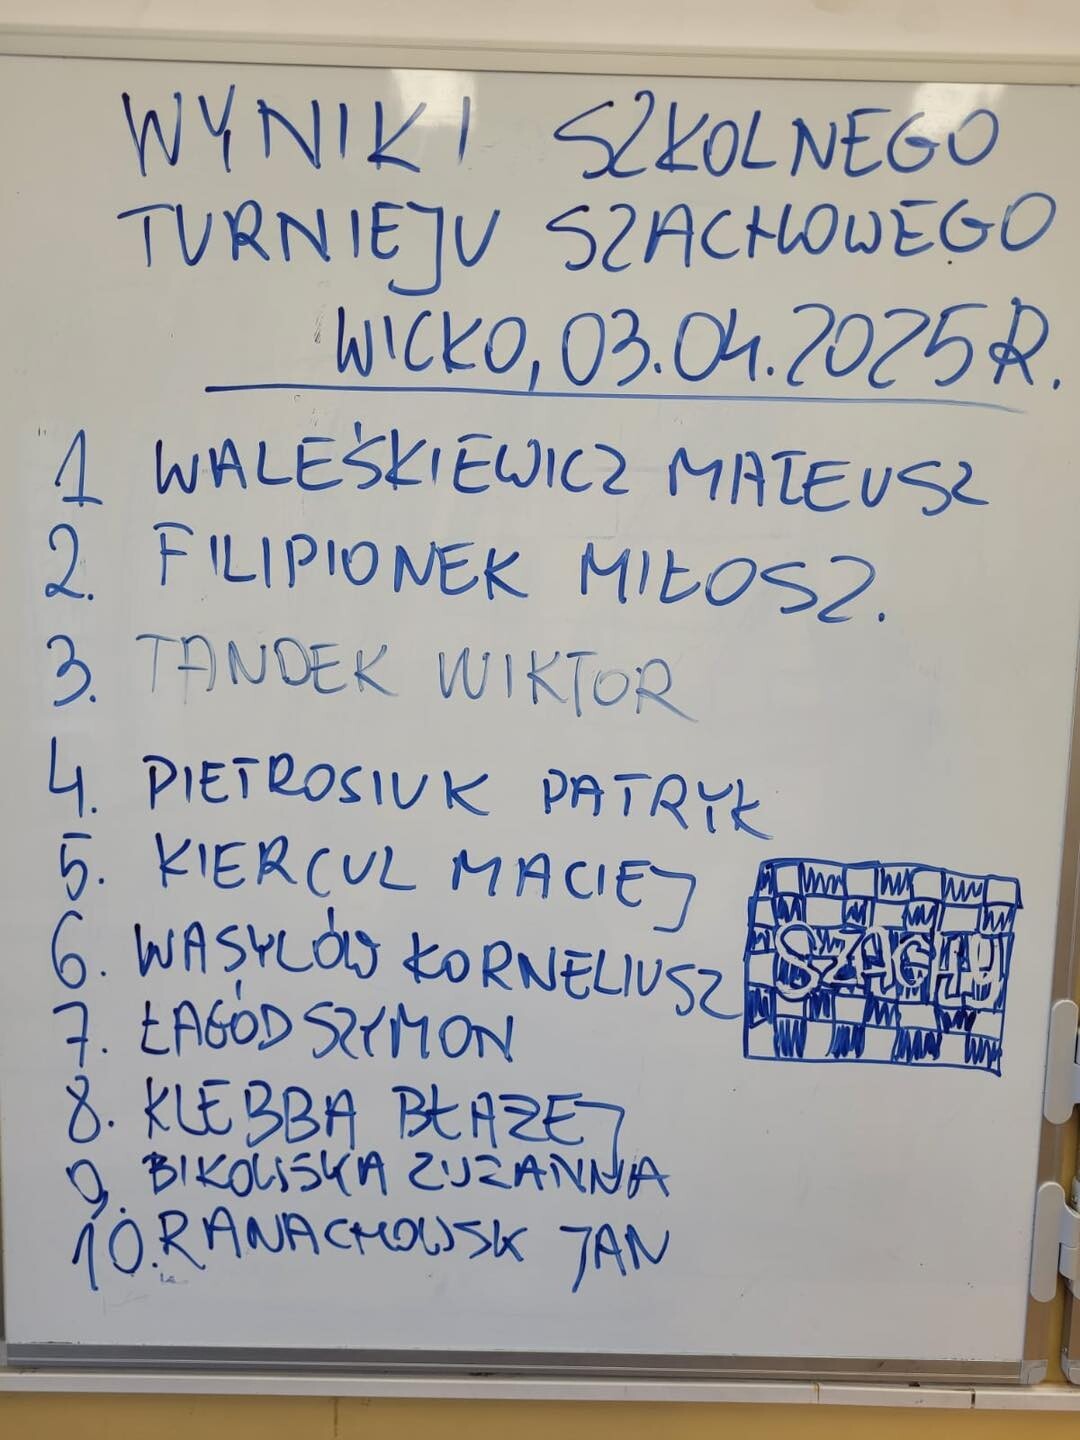 WYNIKI SZKOLNEGO
TURNIEJU SZACHOWEGO
WICKO, 03.04.2025R.
1 WALEŚKIEWICZ MATEUSZ
2. FILIPIONEK MIŁOSZ.
3. TANDEK WIKTOR
4. PIETROSIUK PATRYK
5. KIERCUL MACIEJ
6. WASYLÓW KORNELIUSZ
SZACHY
7. ŁAGÓD SZYMON
8. KLEBBA BŁAZEJ
9. BIKOWSKA ZUZANNA
10. RANACHOWSK JAN